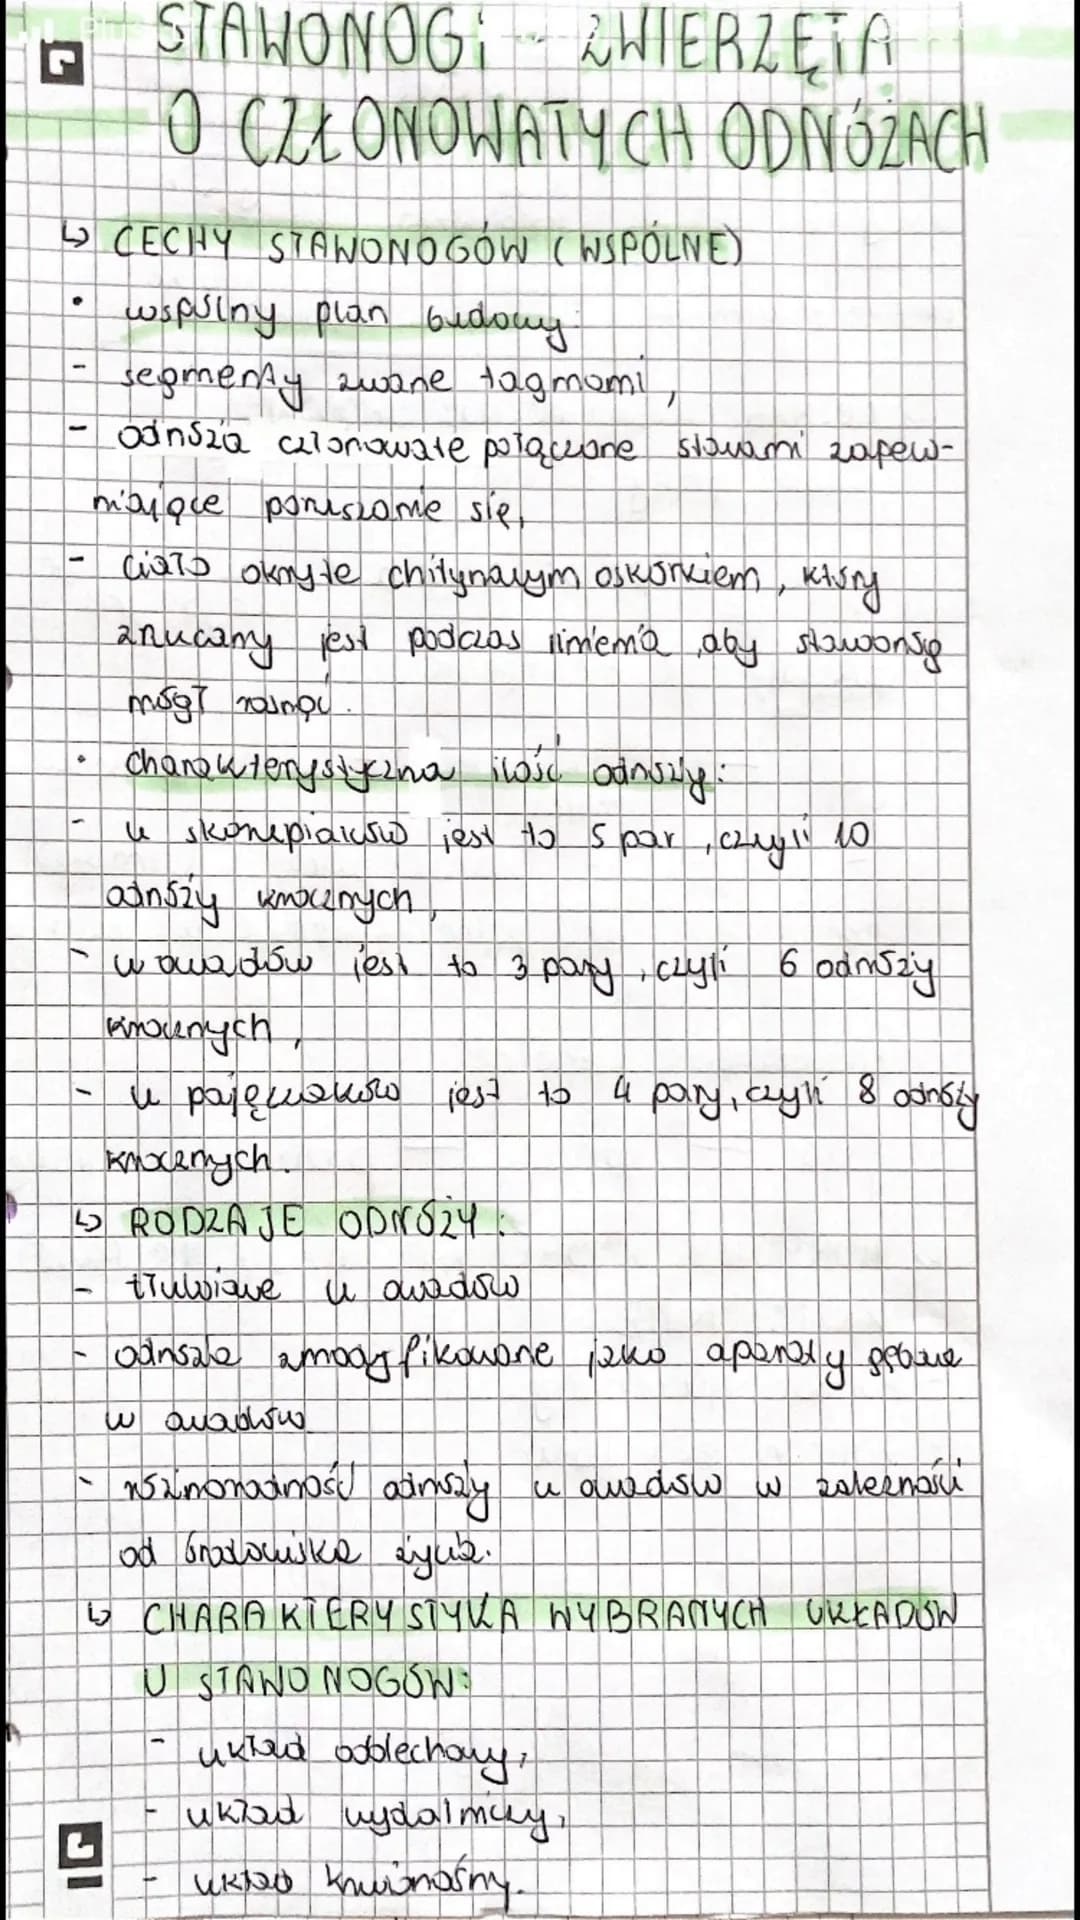 STAWONOGI - ZWIERZĘTA
O CZŁONOWATYCH ODNÓŻACH
↳ CECHY STAWONOGÓW (WSPÓLNE)
• wspólny plan budowy:
- segmenty zwane tagmami,
- odnóża członowate połączone stawami zapew-
niające poruszanie się,
- ciało okryte chitynowym oskórkiem, który
zrzucany jest podczas linienia, aby stawonóg
mógł rosnąć.
• charakterystyczna ilość odnóży:
- u skorupiaków jest to 5 par, czyli 10
odnóży krocznych,
- u owadów jest to 3 pary, czyli 6 odnóży
krocznych,
- u pajęczaków jest to 4 pary, czyli 8 odnóży
krocznych.
↳ RODZAJE ODNÓŻY:
- tłułowiowe u owadów
- odnóża zmodyfikowane jako aparaty gębowe
u owadów
- różnorodność odnóży u owadów w zależności
od środowiska życia.
↳ CHARAKTERYSTYKA WYBRANYCH UKŁADÓW
U STAWONOGÓW:
- układ oddechowy,
- układ wydalniczy,
- układ krwionośny.